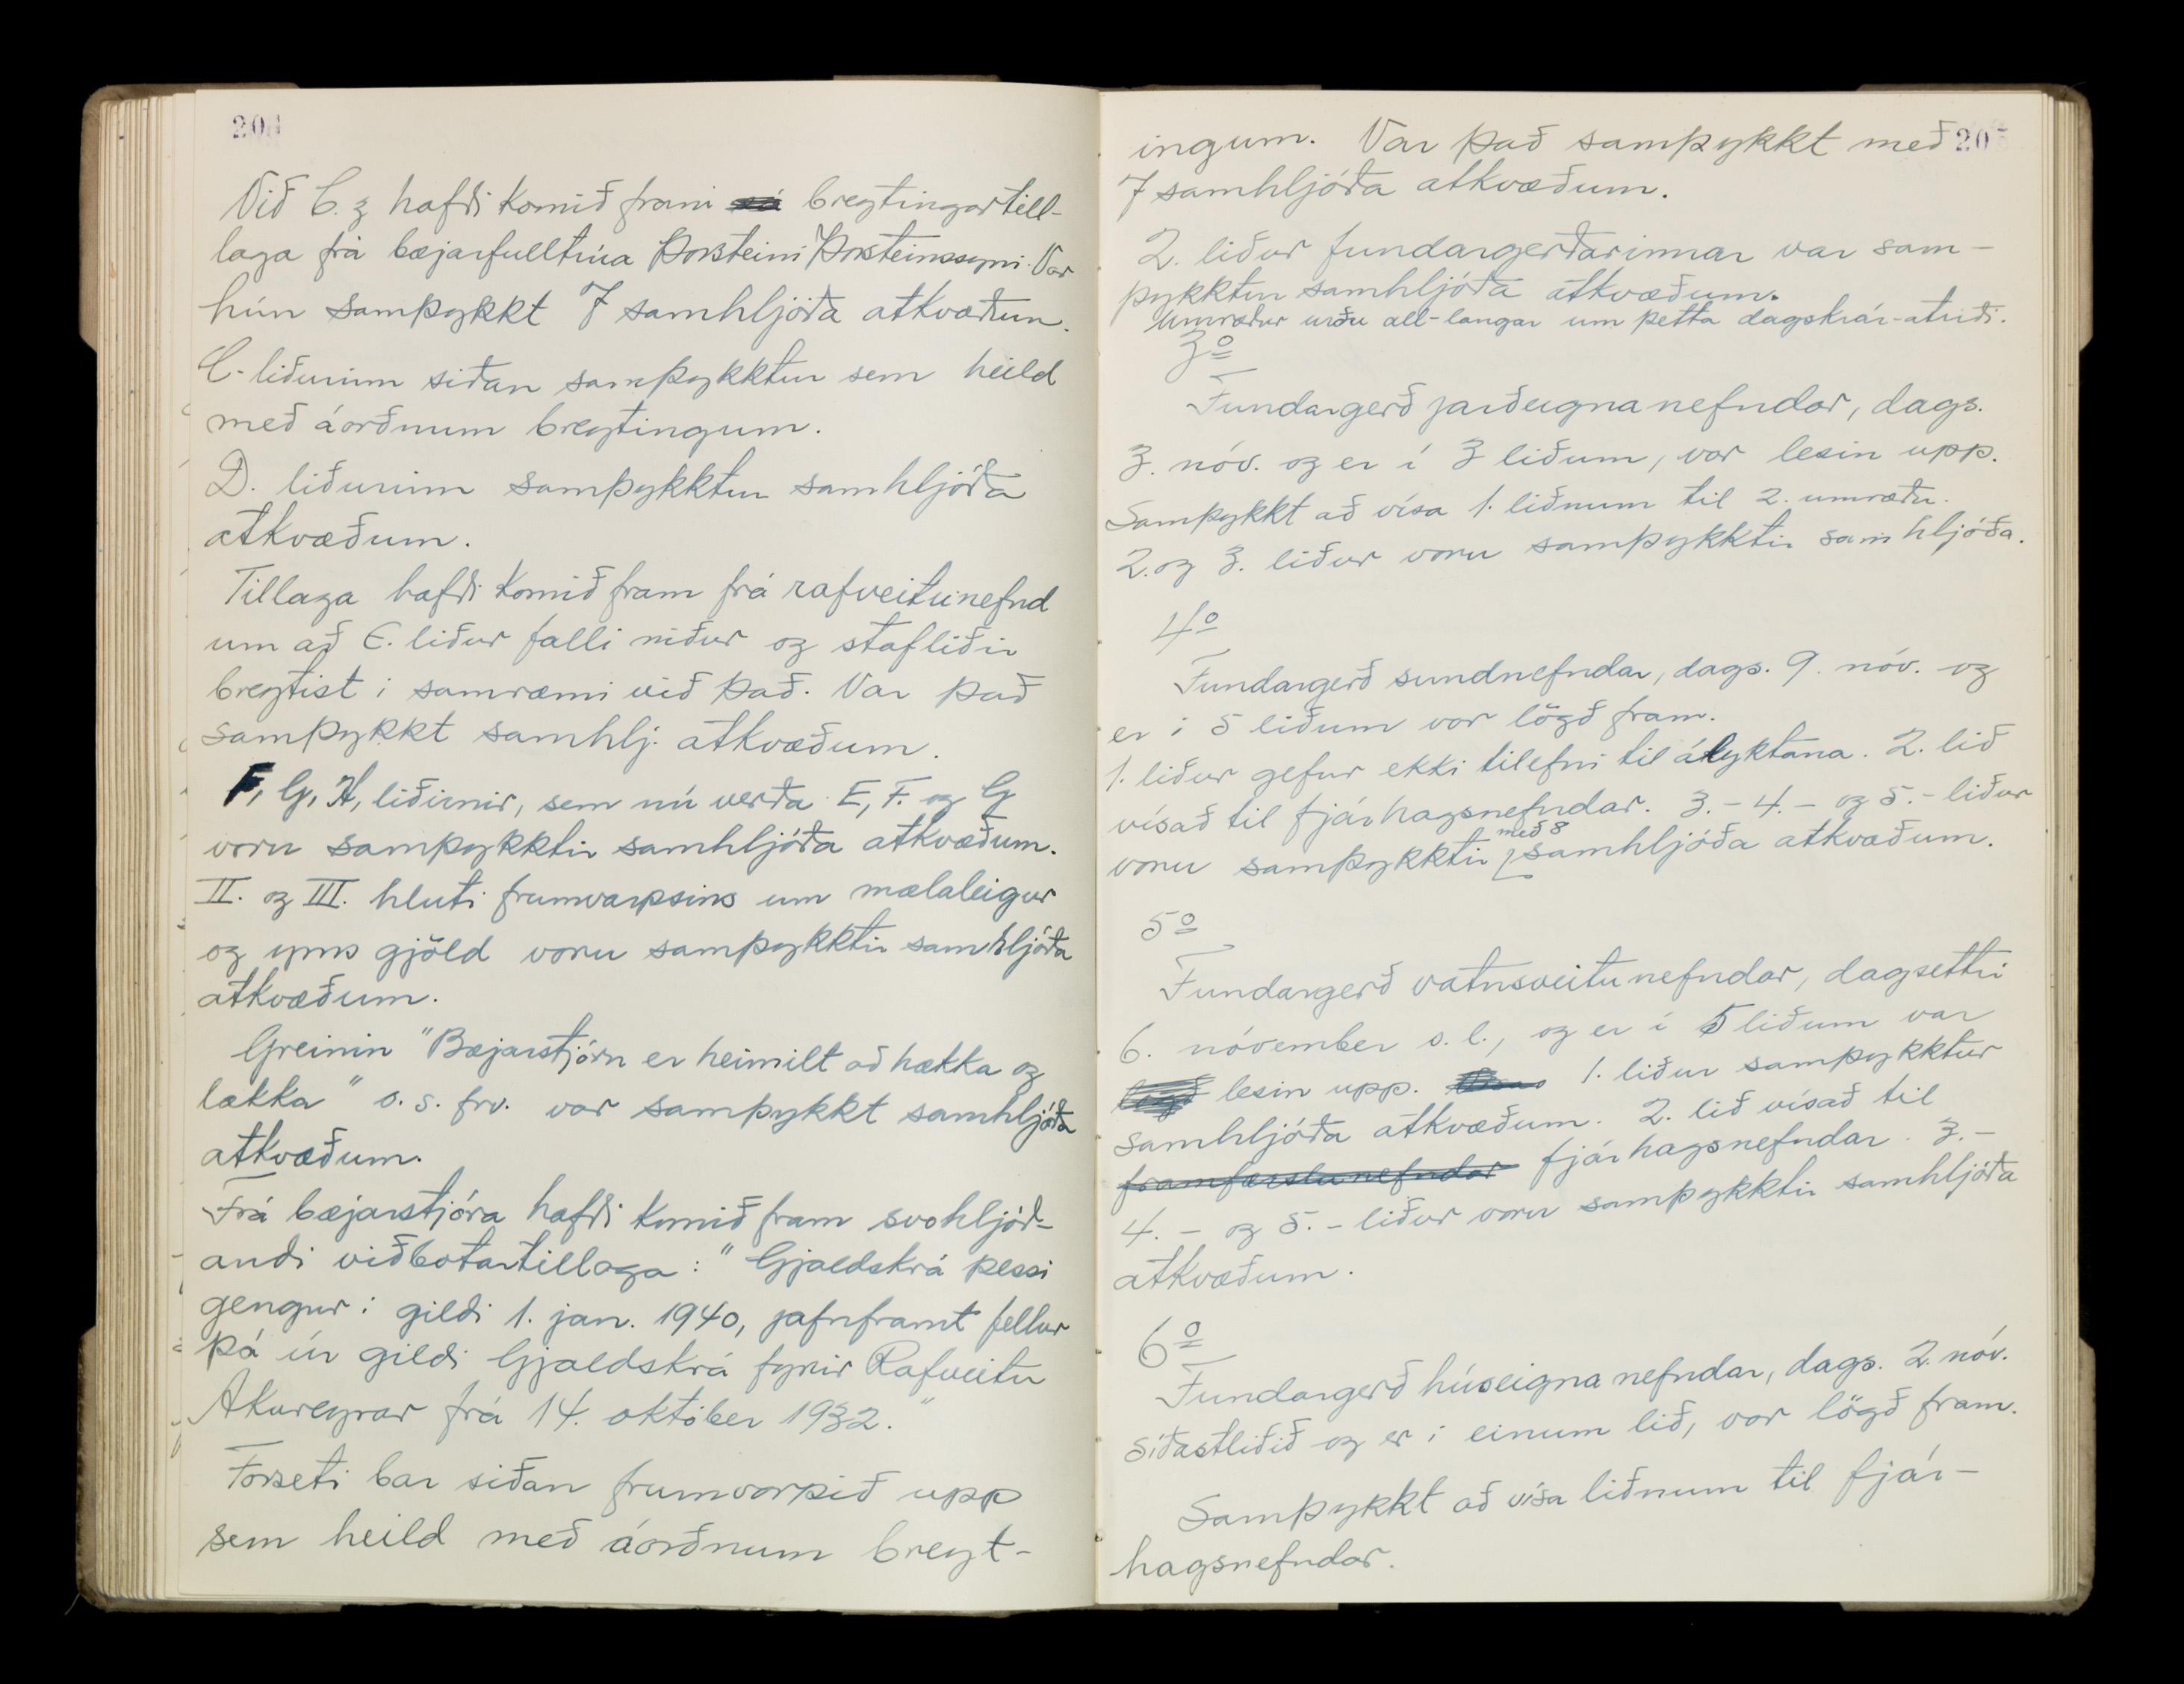 204
Við C. 3 hafði komið fram sú breytingartill-
laga frá bæjarfulltrúa Þorsteini Þorsteinssyni. Var
hún samþykkt 7 samhljóða atkvæðum.
C-liðurinn síðan samþykktur sem heild
með áorðnum breytingum.
D. liðurinn samþykktur samhljóða
atkvæðum.
Tillaga hafði komið fram frá rafveitunefnd
um að E. liður falli niður og stafliðir
breytist í samræmi við það. Var það
samþykkt samhlj. atkvæðum.
F, G, H, liðirnir, sem nú verða E, F. og G
voru samþykktir samhljóða atkvæðum.
II. og III. hluti frumvarpsins um mælaleigur
og ýms gjöld voru samþykktir samhljóða
atkvæðum.
Greinin "Bæjarstjórn er heimilt að hækka og
lækka" o.s.frv. var samþykkt samhljóða
atkvæðum.
Frá bæjarstjóra hafði komið fram svohljóð-
andi viðbótartillaga: "Gjaldskrá þessi
gengur í gildi 1. jan. 1940, jafnframt fellur
þá úr gildi Gjaldskrá fyrir Rafveitu
Akureyrar frá 14. október 1932."
Forseti bar síðan frumvarpið upp
sem heild með áorðnum breyt-
205
ingum. Var það samþykkt með
7 samhljóða atkvæðum.
2. liður fundargerðarinnar var sam-
þykktur samhljóða atkvæðum.
Umræður urðu all-langar um þetta dagskrár-atriði.
3º
Fundargerð jarðeignanefndar, dags.
3. nóv. og er í 3 liðum, var lesin upp.
Samþykkt að vísa 1. liðnum til 2. umræðu.
2. og 3. liður voru samþykktir samhljóða.
4º
Fundargerð sundnefndar, dags. 9. nóv. og
er í 5 liðum var lögð fram.
1. liður gefur ekki tilefni til ályktana. 2. lið
vísað til fjárhagsnefndar. 3.- 4.- og 5.- liður
voru samþykktir með 8 samhljóða atkvæðum.
5º
Fundargerð vatnsveitunefndar, dagsettri
6. nóvember s.l., og er í 5 liðum var
lögð lesin upp. 1. liður samþykktur
samhljóða atkvæðum. 2. lið vísað til
framfærslunefndar fjárhagsnefndar. 3.-
4.- og 5.- liður voru samþykktir samhljóða
atkvæðum.
6º
Fundargerð húseignanefndar, dags. 2. nóv.
síðastliðið og er í einum lið, var lögð fram.
Samþykkt að vísa liðnum til fjár-
hagsnefndar.